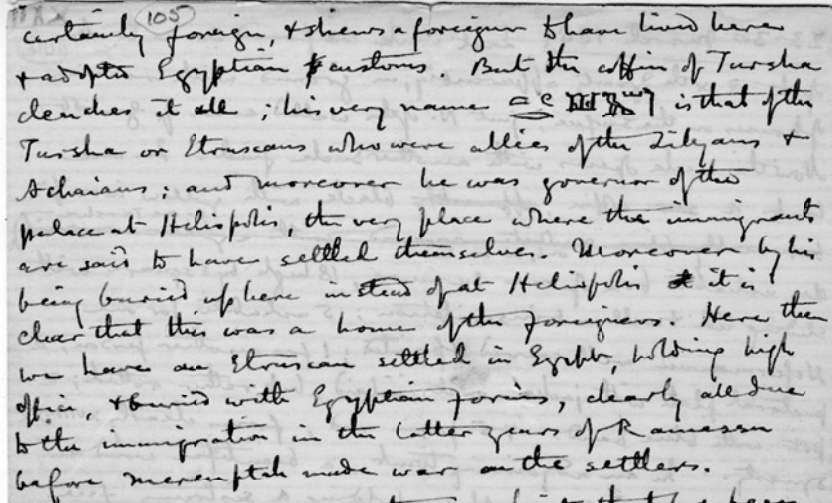 105
certainly foreign, & shews a foreigner to have lived here
& adopted Egyptian customs. But the coffin of Tursha
clenches it all; his very name is that of the
Tursha or Etruscans who were allies of the Libyans &
Achaians; and moreover he was governor of the
palace at Heliopolis, the very place where the immigrants
are said to have settled themselves. Moreover by his
being buried up here instead of at Heliopolis it is
clear that this was a home of the foreigners. Here then
we have an Etruscan settled in Egypt, holding high
office, & buried with Egyptian forms, clearly all due
to the immigration in the latter years of Ramessu
before Merenptah made war on the settlers.